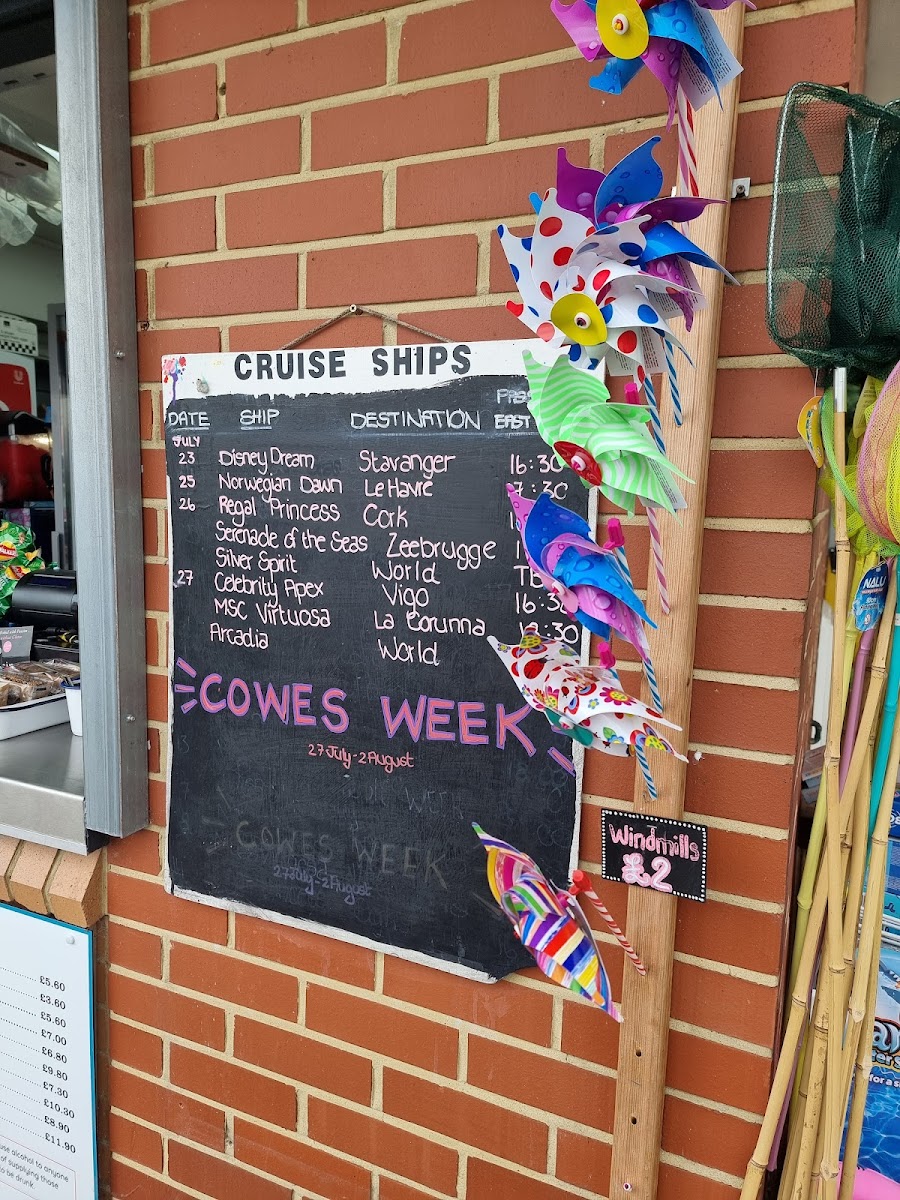 CRUISE SHIPS
DATE SHIP DESTINATION EAST
JULY
23 Disney Dream Stavanger 16:30
25 Norwegian Dawn Le Havre 7:30
26 Regal Princess Cork
Serenade of the Seas Zeebrugge
Silver Spirit World
27 Celebrity Apex Vigo 16:30
MSC Virtuosa La Corunna
Arcadia World
COWES WEEK
27 July - 2 August
COWES WEEK
27 July - 2 August
Windmills
£2
NALU
£5.60
£3.60
£5.60
£7.00
£6.80
£9.80
£7.30
£10.30
£8.90
£11.90
use alcohol to anyone
of supplying those
to be drunk.